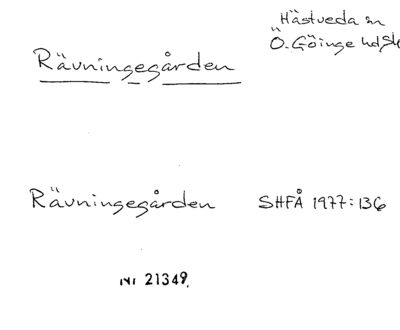 Hästveda sn
Ö. Göinge hd, Sk
Rävningegården
Rävningegården SHFÅ 1977:136
21349